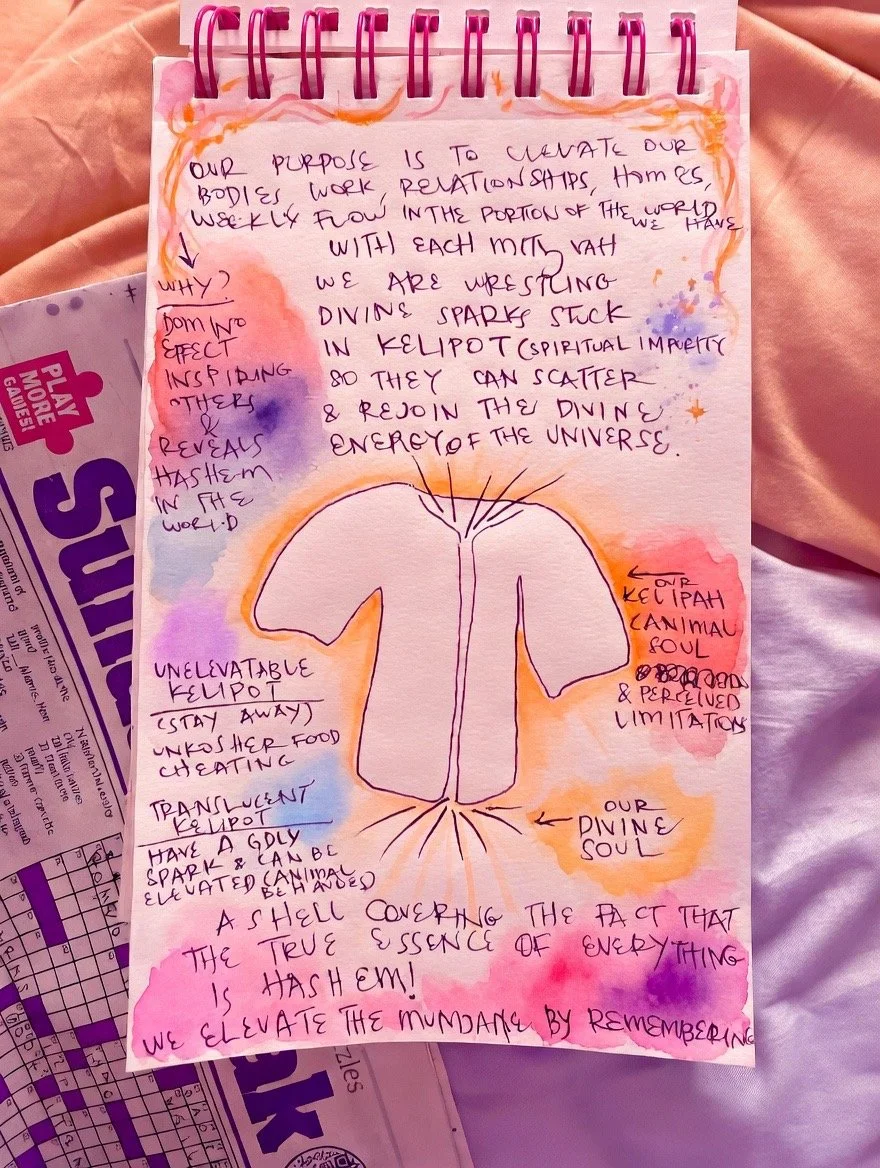 OUR PURPOSE IS TO ELEVATE OUR
BODIES WORK, RELATIONSHIPS, HOMES,
WEEKLY FLOW IN THE PORTION OF THE WORLD
WE HAVE
WITH EACH MITZVAH
WE ARE WRESTLING
DIVINE SPARKS STUCK
IN KELIPOT (SPIRITUAL IMPURITY
SO THEY CAN SCATTER
& REJOIN THE DIVINE
ENERGY OF THE UNIVERSE.
WHY?
DOMINO
EFFECT
INSPIRING
OTHERS
&
REVEALS
HASHEM
IN THE
WORLD
OUR
KELIPAH
(ANIMAL
SOUL
& PERCEIVED
LIMITATIONS
UNELEVATABLE
KELIPOT
(STAY AWAY)
UNKOSHER FOOD
CHEATING
TRANSLUCENT
KELIPOT
HAVE A GDLY
SPARK & CAN BE
ELEVATED (ANIMAL
BEHAVED)
OUR
DIVINE
SOUL
A SHELL COVERING THE FACT THAT
THE TRUE ESSENCE OF EVERYTHING
IS HASHEM!
WE ELEVATE THE MUNDANE BY REMEMBERING
PLAY
MORE
GAMES!
Sun
ak
zzles